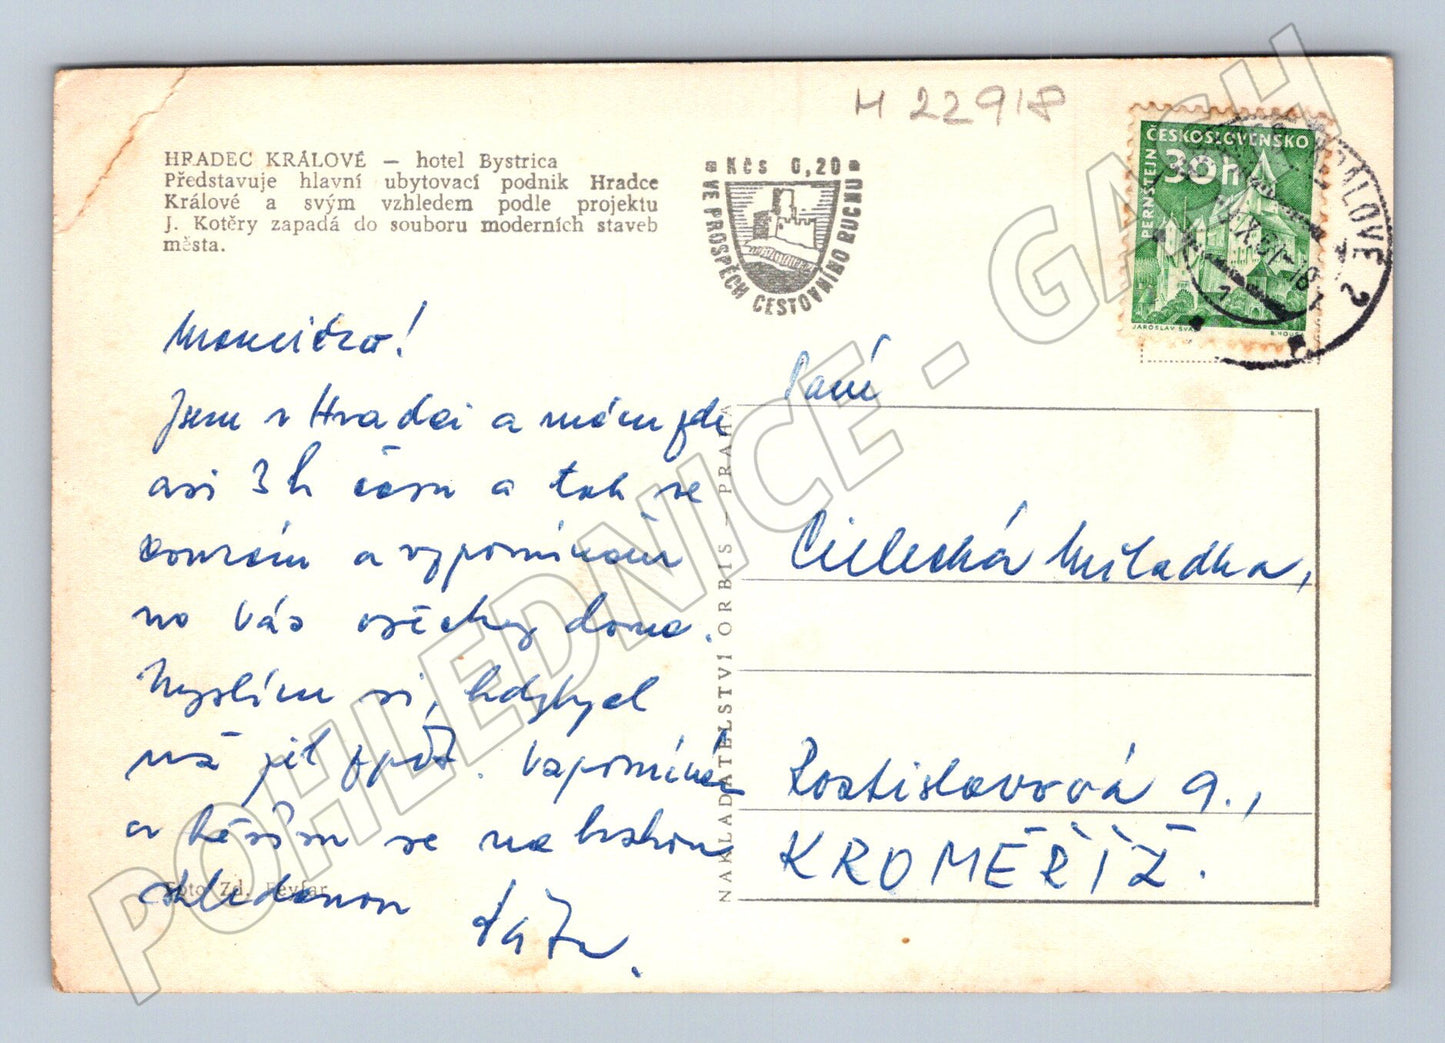 M 22918
HRADEC KRÁLOVÉ — hotel Bystrica
Představuje hlavní ubytovací podnik Hradce
Králové a svým vzhledem podle projektu
J. Kotěry zapadá do souboru moderních staveb
města.
Kčs 0,20
VE PROSPĚCH CESTOVNÍHO RUCHU
ČESKOSLOVENSKO
30h
PERNŠTEJN
JAROSLAV
KRÁLOVÉ 2
Jsem v Hradci a mám zde
asi 3 h času a tak se
courám a vzpomínám
na Vás všechny doma.
Myslím si, kdybych
už jel zpět. Vzpomínám
a těším se na
shledanou
táta.
Foto Zd. Feyfar
NAKLADATELSTVÍ ORBIS — PRAHA
Paní
Cielecká Miladka,
Rostislavová 9.,
KROMĚŘÍŽ.
POHLEDNICE - GACH